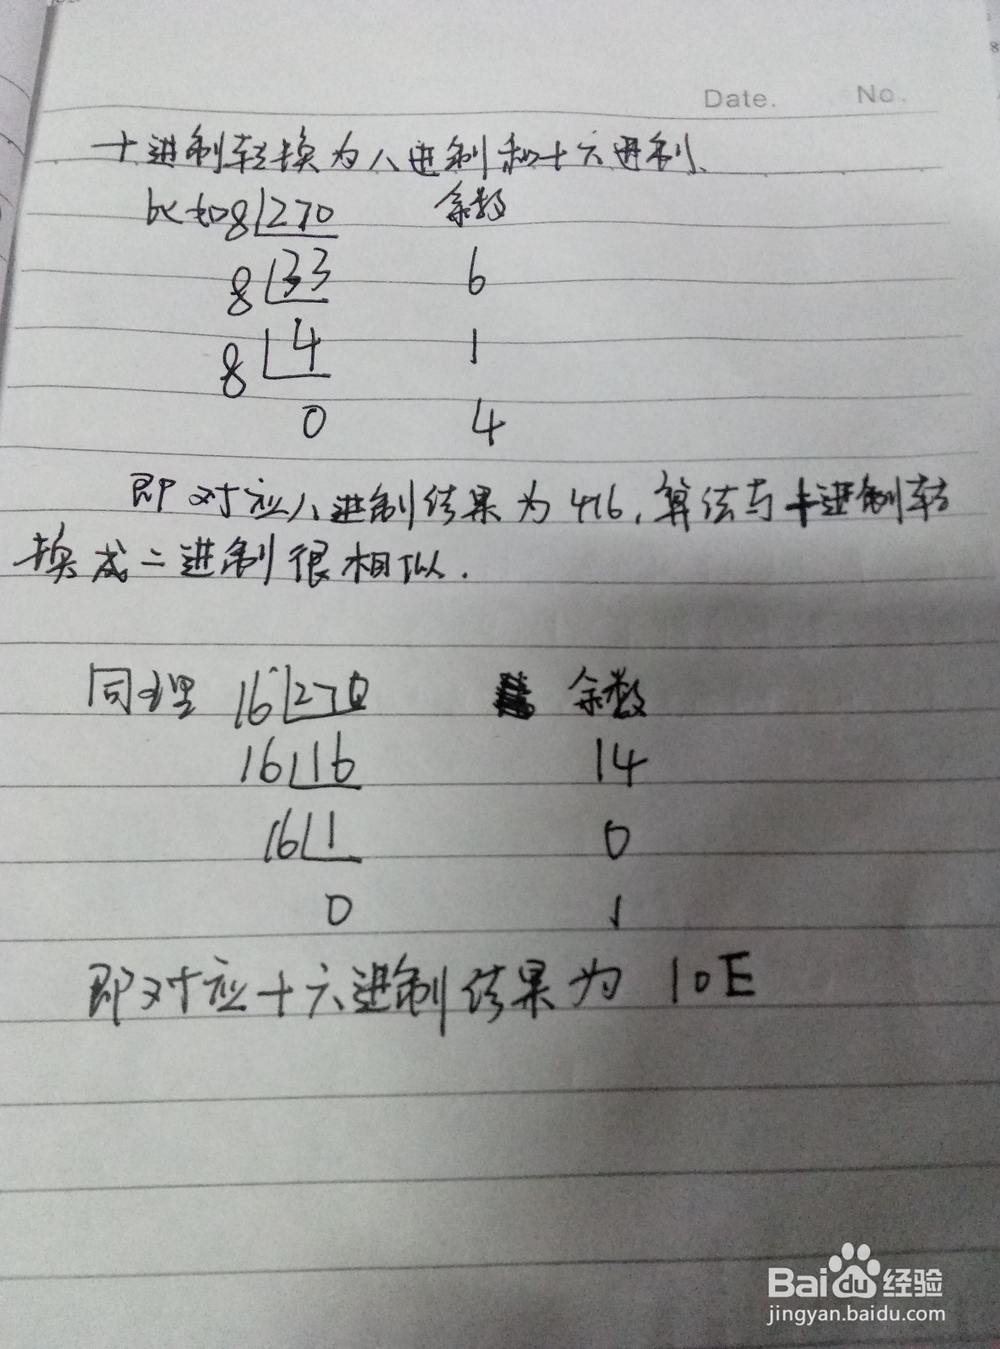 Date. No.
十进制转换为八进制和十六进制.
比如8 270 余数
8 33 6
8 4 1
0 4
即对应八进制结果为416,算法与十进制转
换成二进制很相似.
同理 16 270 余数
16 16 14
16 1 0
0 1
即对应十六进制结果为 10E
Baidu经验
jingyan.baidu.com